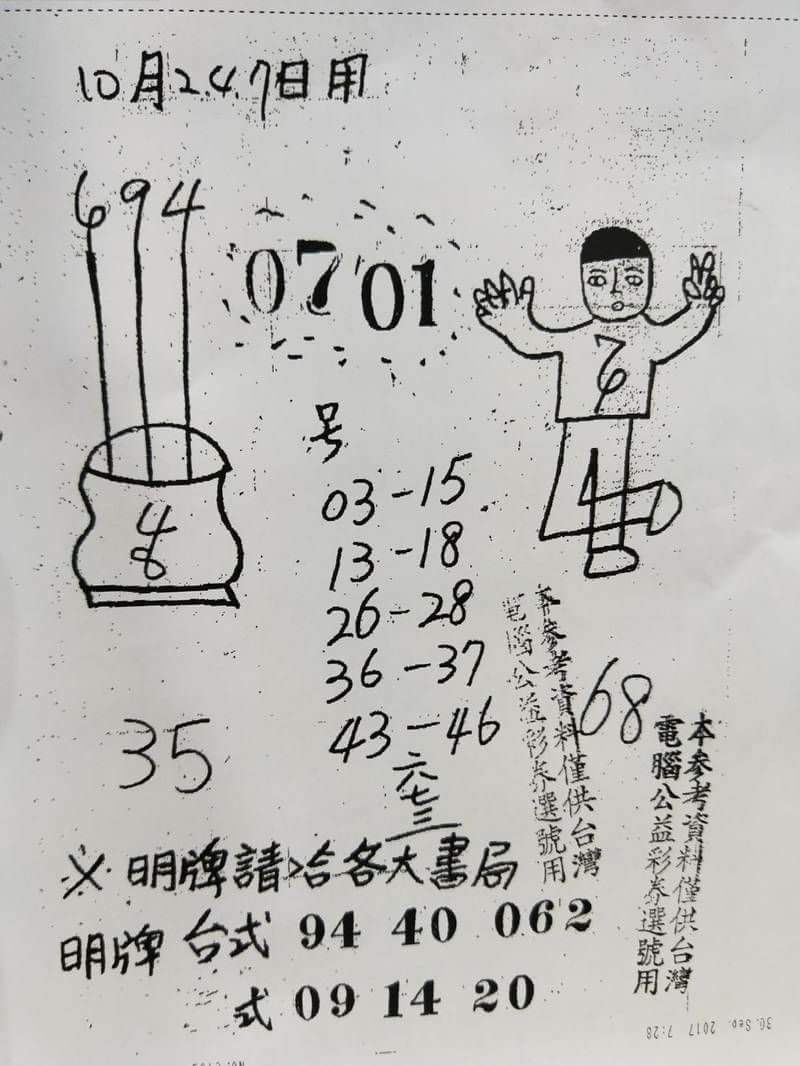 10月24.7日用
694
0701
号
03-15
13-18
26-28
36-37
43-46
六
七
三
4
8
7
6
1
35
68
本參考資料僅供台灣
電腦公益彩券選號用
本參考資料僅供台灣
電腦公益彩券選號用
※明牌請洽各大書局
明牌 台式 94 40 062
式 09 14 20
30. Sep. 2017 7:28